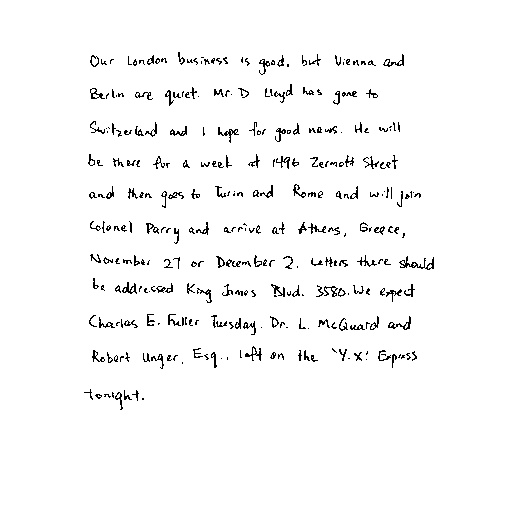 Our London business is good, but Vienna and
Berlin are quiet. Mr. D Lloyd has gone to
Switzerland and I hope for good news. He will
be there for a week at 1496 Zermott Street
and then goes to Turin and Rome and will join
Colonel Parry and arrive at Athens, Greece,
November 27 or December 2. Letters there should
be addressed King James Blvd. 3580. We expect
Charles E. Fuller Tuesday. Dr. L. McQuard and
Robert Unger, Esq., left on the 'Y.X.' Express
tonight.